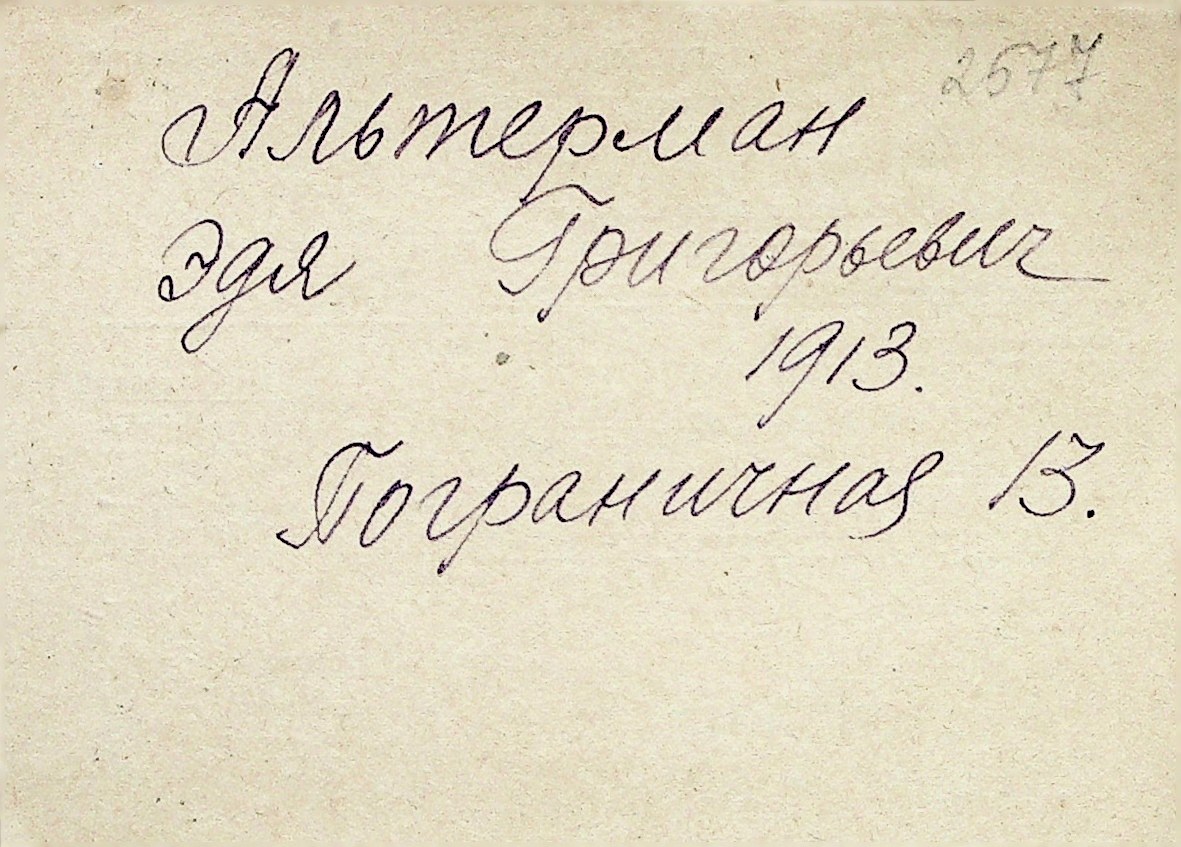 2577
Альтерман
Эдя Григорьевич
1913.
Пограничная 13.